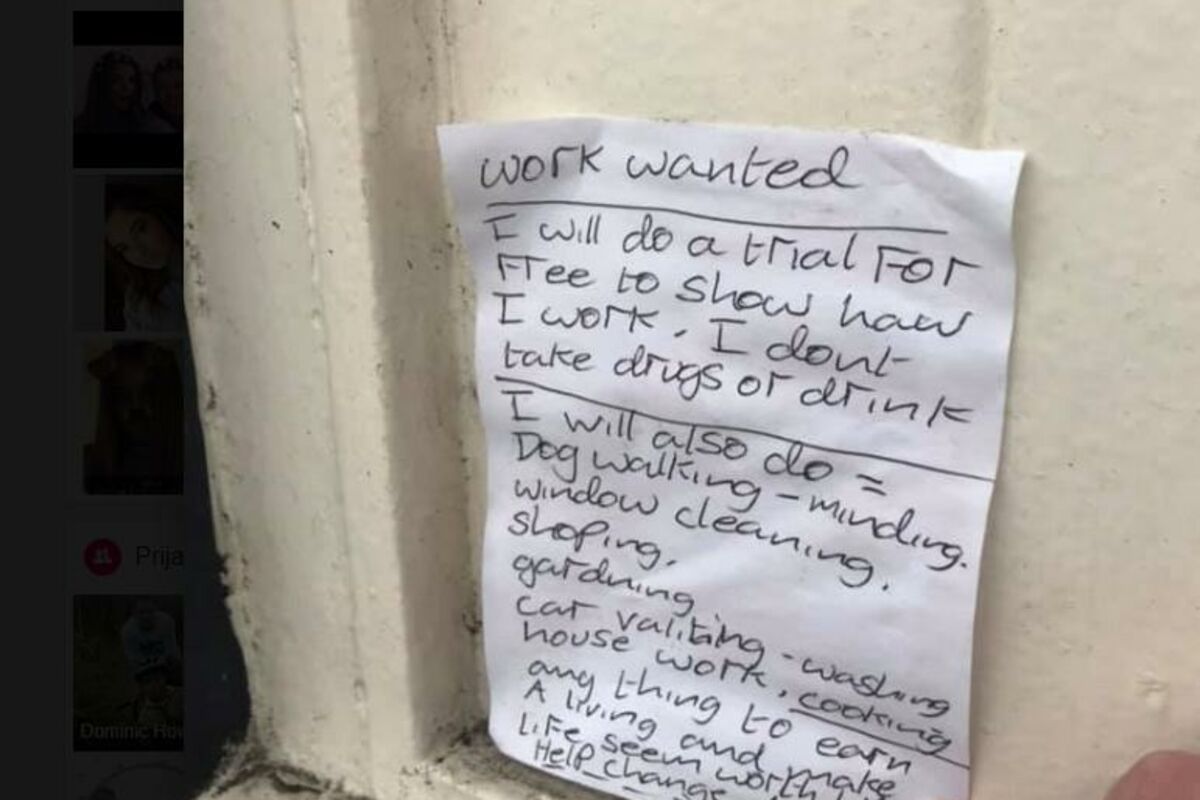 work wanted
I will do a trial For
Free to show haw
I work. I dont
take drugs or drink
I will also do =
Dog walking - minding.
window cleaning.
shoping.
gardning
car valiting - washing
house work. cooking
any thing to earn
A living and make
life seem worth
Help change
Prija
Dominic How